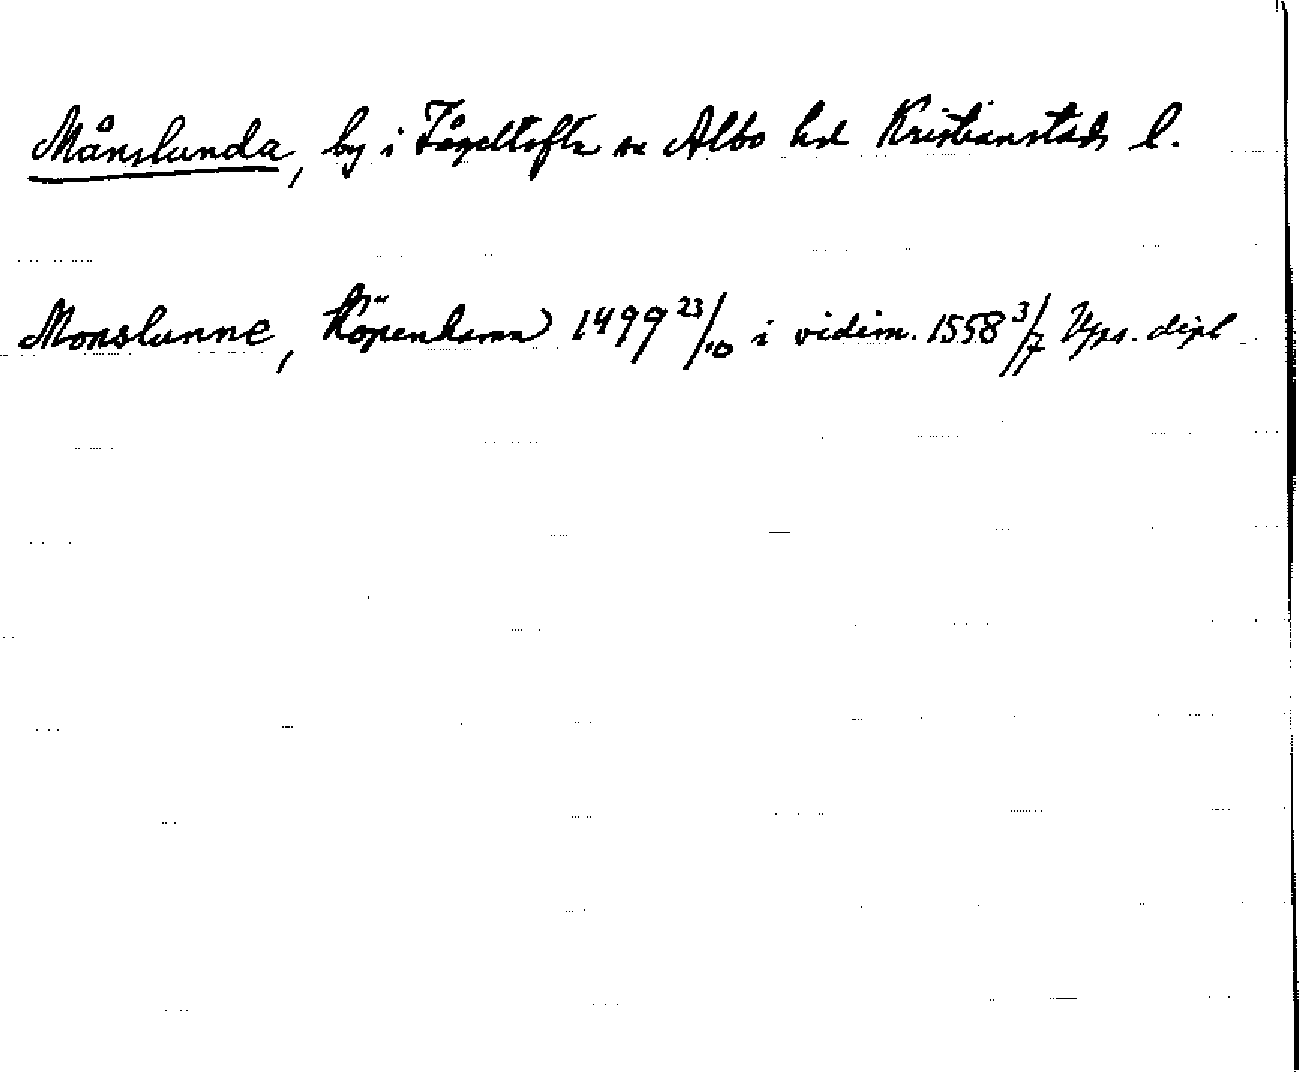 Månslunda, by i Tågeltofte sn Albo hd Kristianstads l.
Monslunne, Köpenhamn 1499 23/10 i vidim. 1558 3/7 Ups. dipl